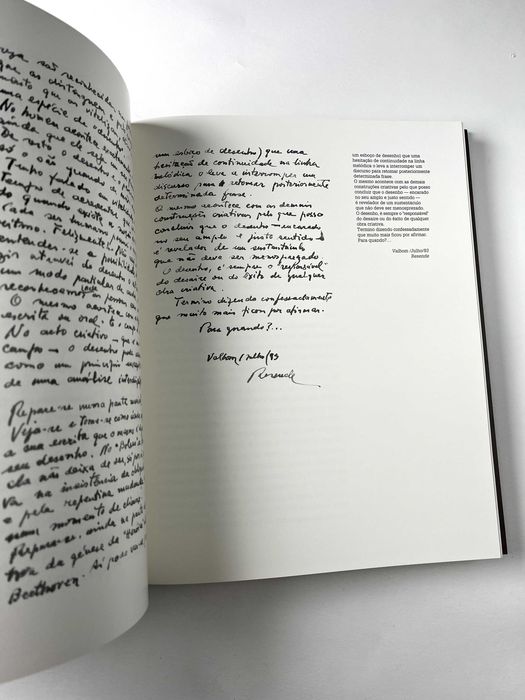 reça são reconhecida
que as distinguem
muito que os vitais
uma espécie de
No homem acontece
ainda que ele
De resto o desenho
as o são quando
Tenho falado
do quando existe
Cada ser humano
ritmo. Felizmente
a possibilidade
através do desenho
um modo particular de
reconhecamos a
O mesmo acontece com a
escrita ou oral. É o
No acto criativo — que é
campo — o desenho pode
como um princípio
de uma análise
Repare-se numa pauta
Veja-se e tome-se como
a sua escrita que o mesmo é
seu desenho. No "Bolero"
ela não deixa de ser, se
va na insistência de
e pela repentina mudança
num momento de
Repare-se, ainda na
tiva da génese da
Beethoven. Aí pode
um esboço de desenho) que uma
hesitação de continuidade na linha
melódica o leva a interromper um
discurso para retomar posteriormente
determinada frase.
O mesmo acontece com as demais
construções criativas pelo que posso
concluir que o desenho — encarado
no seu amplo e justo sentido —
é revelador de um sustentáculo
que não deve ser menosprezado.
O desenho, é sempre o "responsável"
do desaire ou do êxito de qualquer
obra criativa.
Termino dizendo confessadamente
que muito mais ficou por afirmar.
Para quando?...
Valbom / Julho / 93
Resende
um esboço de desenho) que uma
hesitação de continuidade na linha
melódica o leva a interromper um
discurso para retomar posteriormente
determinada frase.
O mesmo acontece com as demais
construções criativas pelo que posso
concluir que o desenho — encarado
no seu amplo e justo sentido —
é revelador de um sustentáculo
que não deve ser menosprezado.
O desenho, é sempre o "responsável"
do desaire ou do êxito de qualquer
obra criativa.
Termino dizendo confessadamente
que muito mais ficou por afirmar.
Para quando?...
Valbom /Julho/93
Resende